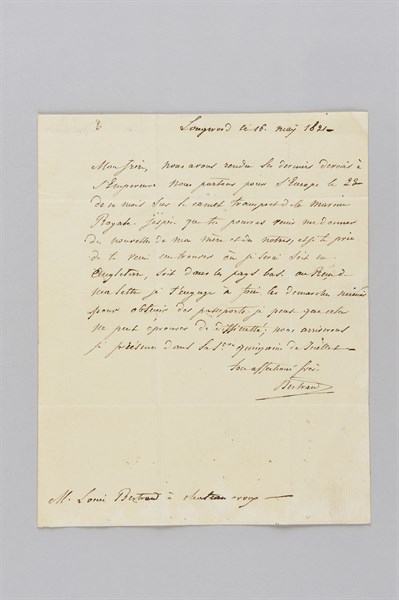 Longwood le 16. may 1821
Mon frère, nous avons rendu les derniers devoirs à
l'Empereur nous partons pour l'Europe le 23
de ce mois sur le camel transport de la marine
Royale. j'espère que tu pourras venir me donner
des nouvelles de ma mère et du notres, et je te prie
de te venir où je serai soit en
Angleterre, soit dans les pays bas. au Reçu de
ma lettre je t'engage à faire les demarches
pour obtenir des passeports, je pense que cela
ne peut éprouver de difficultés; nous arriverons
je présume dans la 1ere quinzaine de Juillet
Ton affectionné frère
Bertrand
Mr. Louis Bertrand à chateauroux